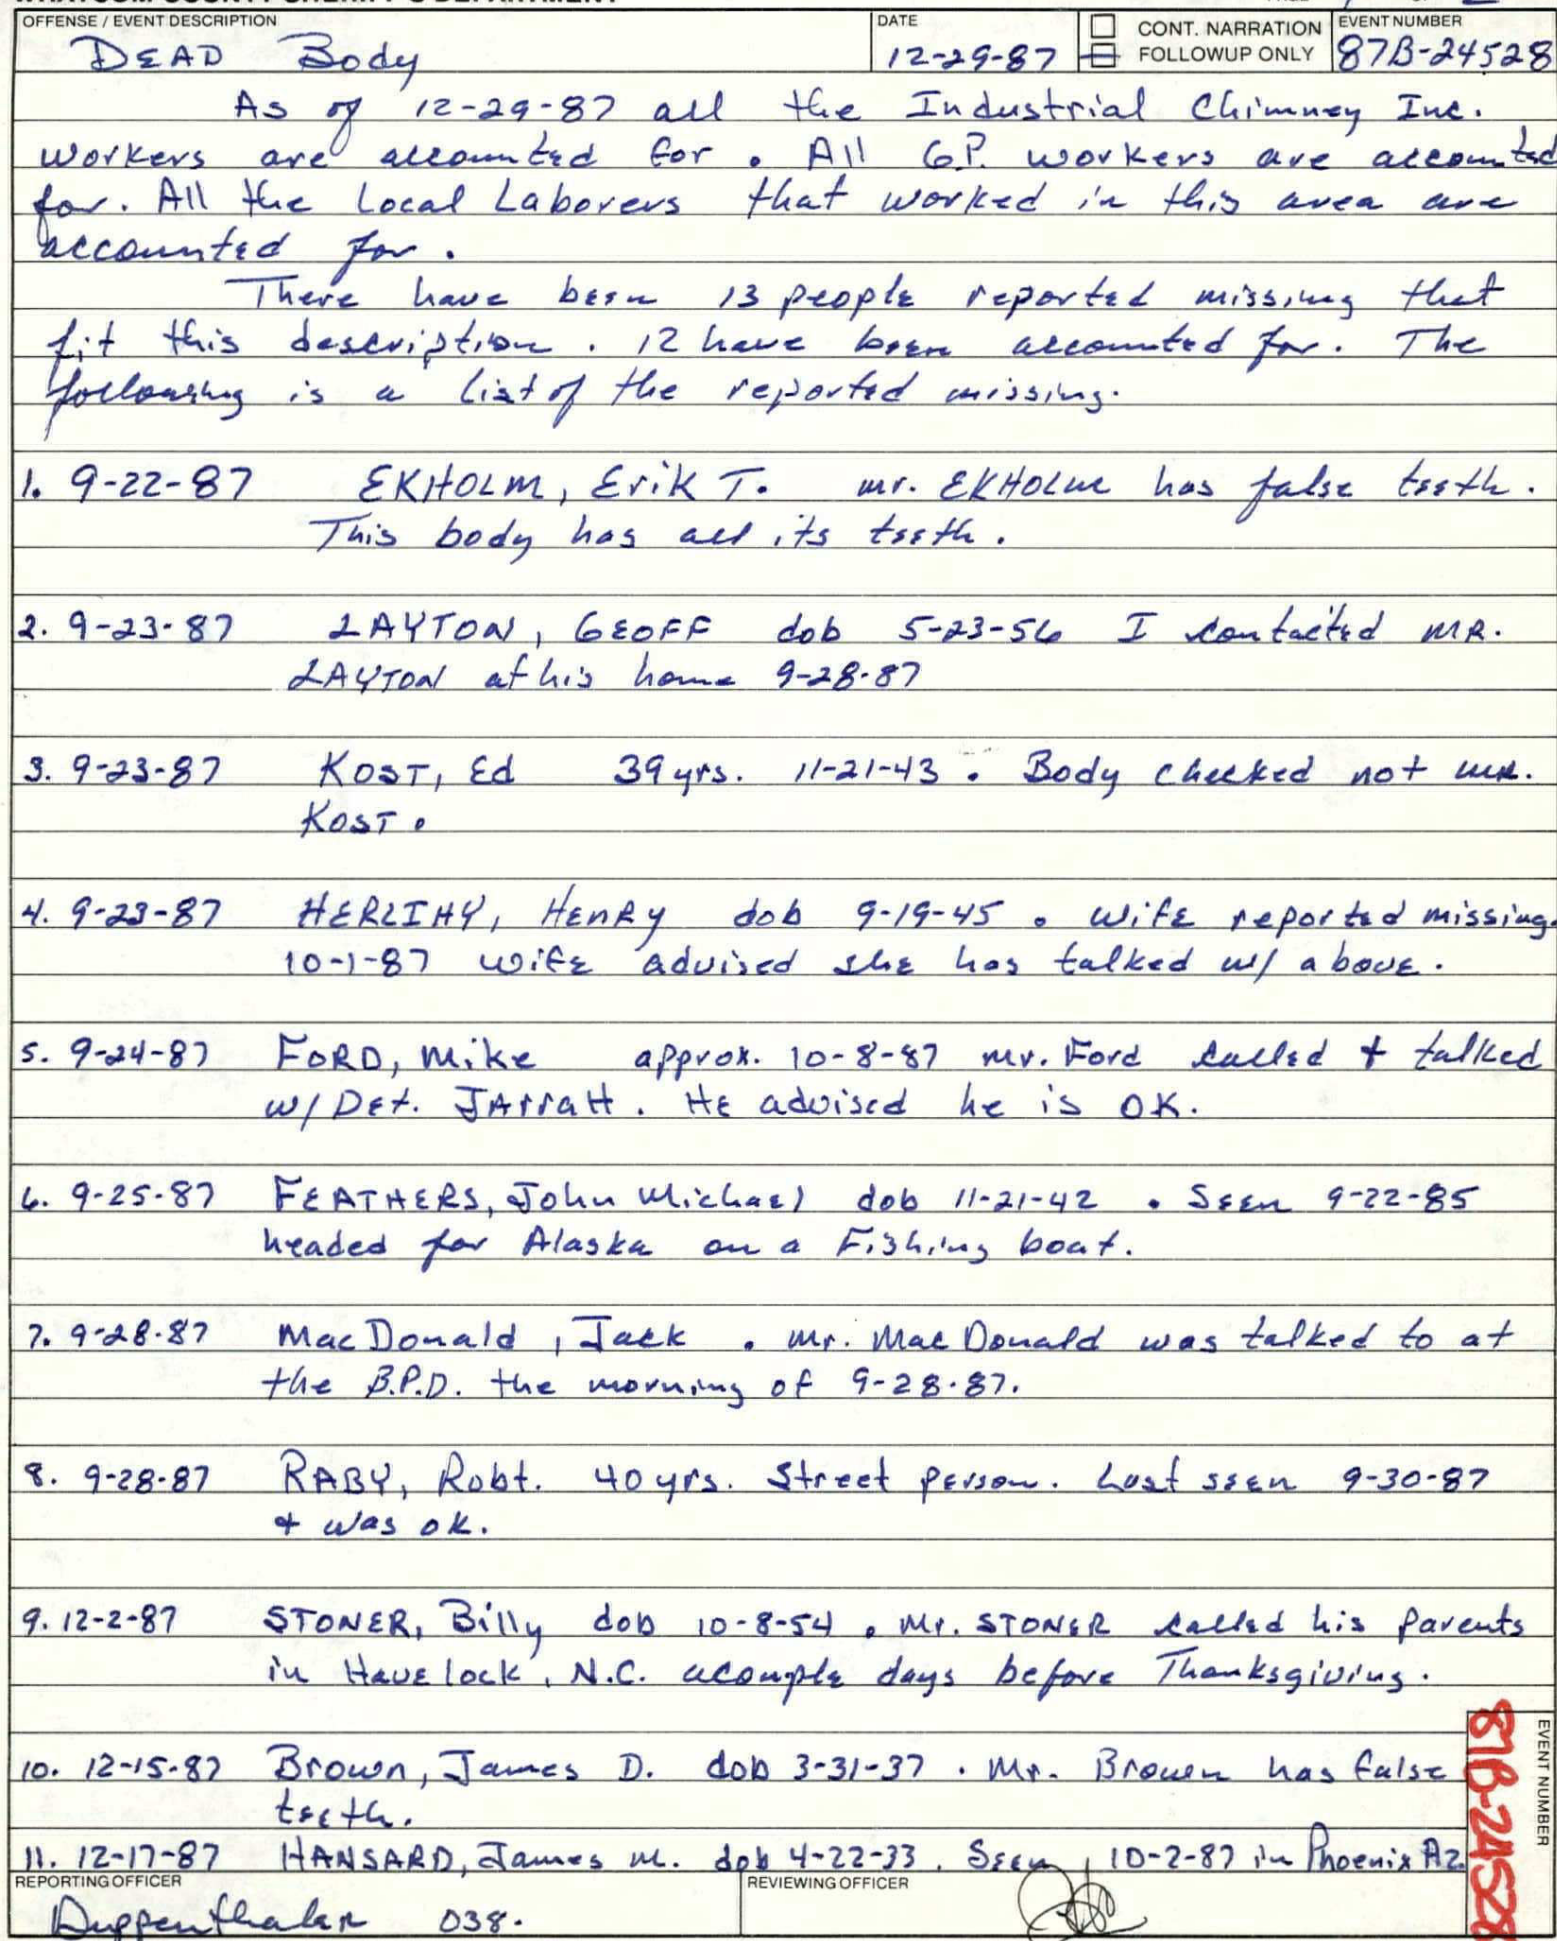 OFFENSE / EVENT DESCRIPTION
DEAD Body
DATE
12-29-87
CONT. NARRATION
FOLLOWUP ONLY
EVENT NUMBER
87B-24528
As of 12-29-87 all the Industrial Chimney Inc.
workers are accounted for. All G.P. workers are accounted
for. All the Local Laborers that worked in this area are
accounted for.
There have been 13 people reported missing that
fit this description. 12 have been accounted for. The
following is a list of the reported missing.
1. 9-22-87 EKHOLM, Erik T. mr. EKHOLM has false teeth.
This body has all its teeth.
2. 9-23-87 LAYTON, GEOFF dob 5-23-56 I contacted MR.
LAYTON at his home 9-28-87
3. 9-23-87 KOST, Ed 39 yrs. 11-21-43. Body checked not mr.
KOST.
4. 9-23-87 HERLIHY, HENRY dob 9-19-45. Wife reported missing.
10-1-87 wife advised she has talked w/ above.
5. 9-24-87 FORD, Mike approx. 10-8-87 mr. Ford called + talked
w/ Det. JArratt. He advised he is OK.
6. 9-25-87 FEATHERS, John Michael dob 11-21-42. Seen 9-22-85
headed for Alaska on a Fishing boat.
7. 9-28-87 MacDonald, Jack. Mr. MacDonald was talked to at
the B.P.D. the morning of 9-28-87.
8. 9-28-87 RABY, Robt. 40 yrs. Street person. Last seen 9-30-87
+ was ok.
9. 12-2-87 STONER, Billy dob 10-8-54. Mr. STONER called his parents
in Havelock, N.C. acouple days before Thanksgiving.
10. 12-15-87 Brown, James D. dob 3-31-37. Mr. Brown has false
teeth.
11. 12-17-87 HANSARD, James M. dob 4-22-33. Seen 10-2-87 in Phoenix Az.
REPORTING OFFICER
Duppenthaler 038.
REVIEWING OFFICER
EVENT NUMBER
87B-24528